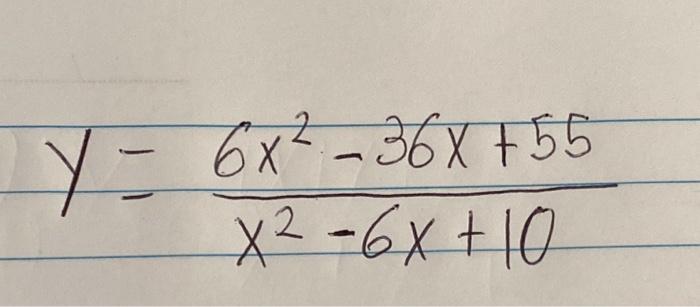 y = 6x² - 36x + 55
x² - 6x + 10